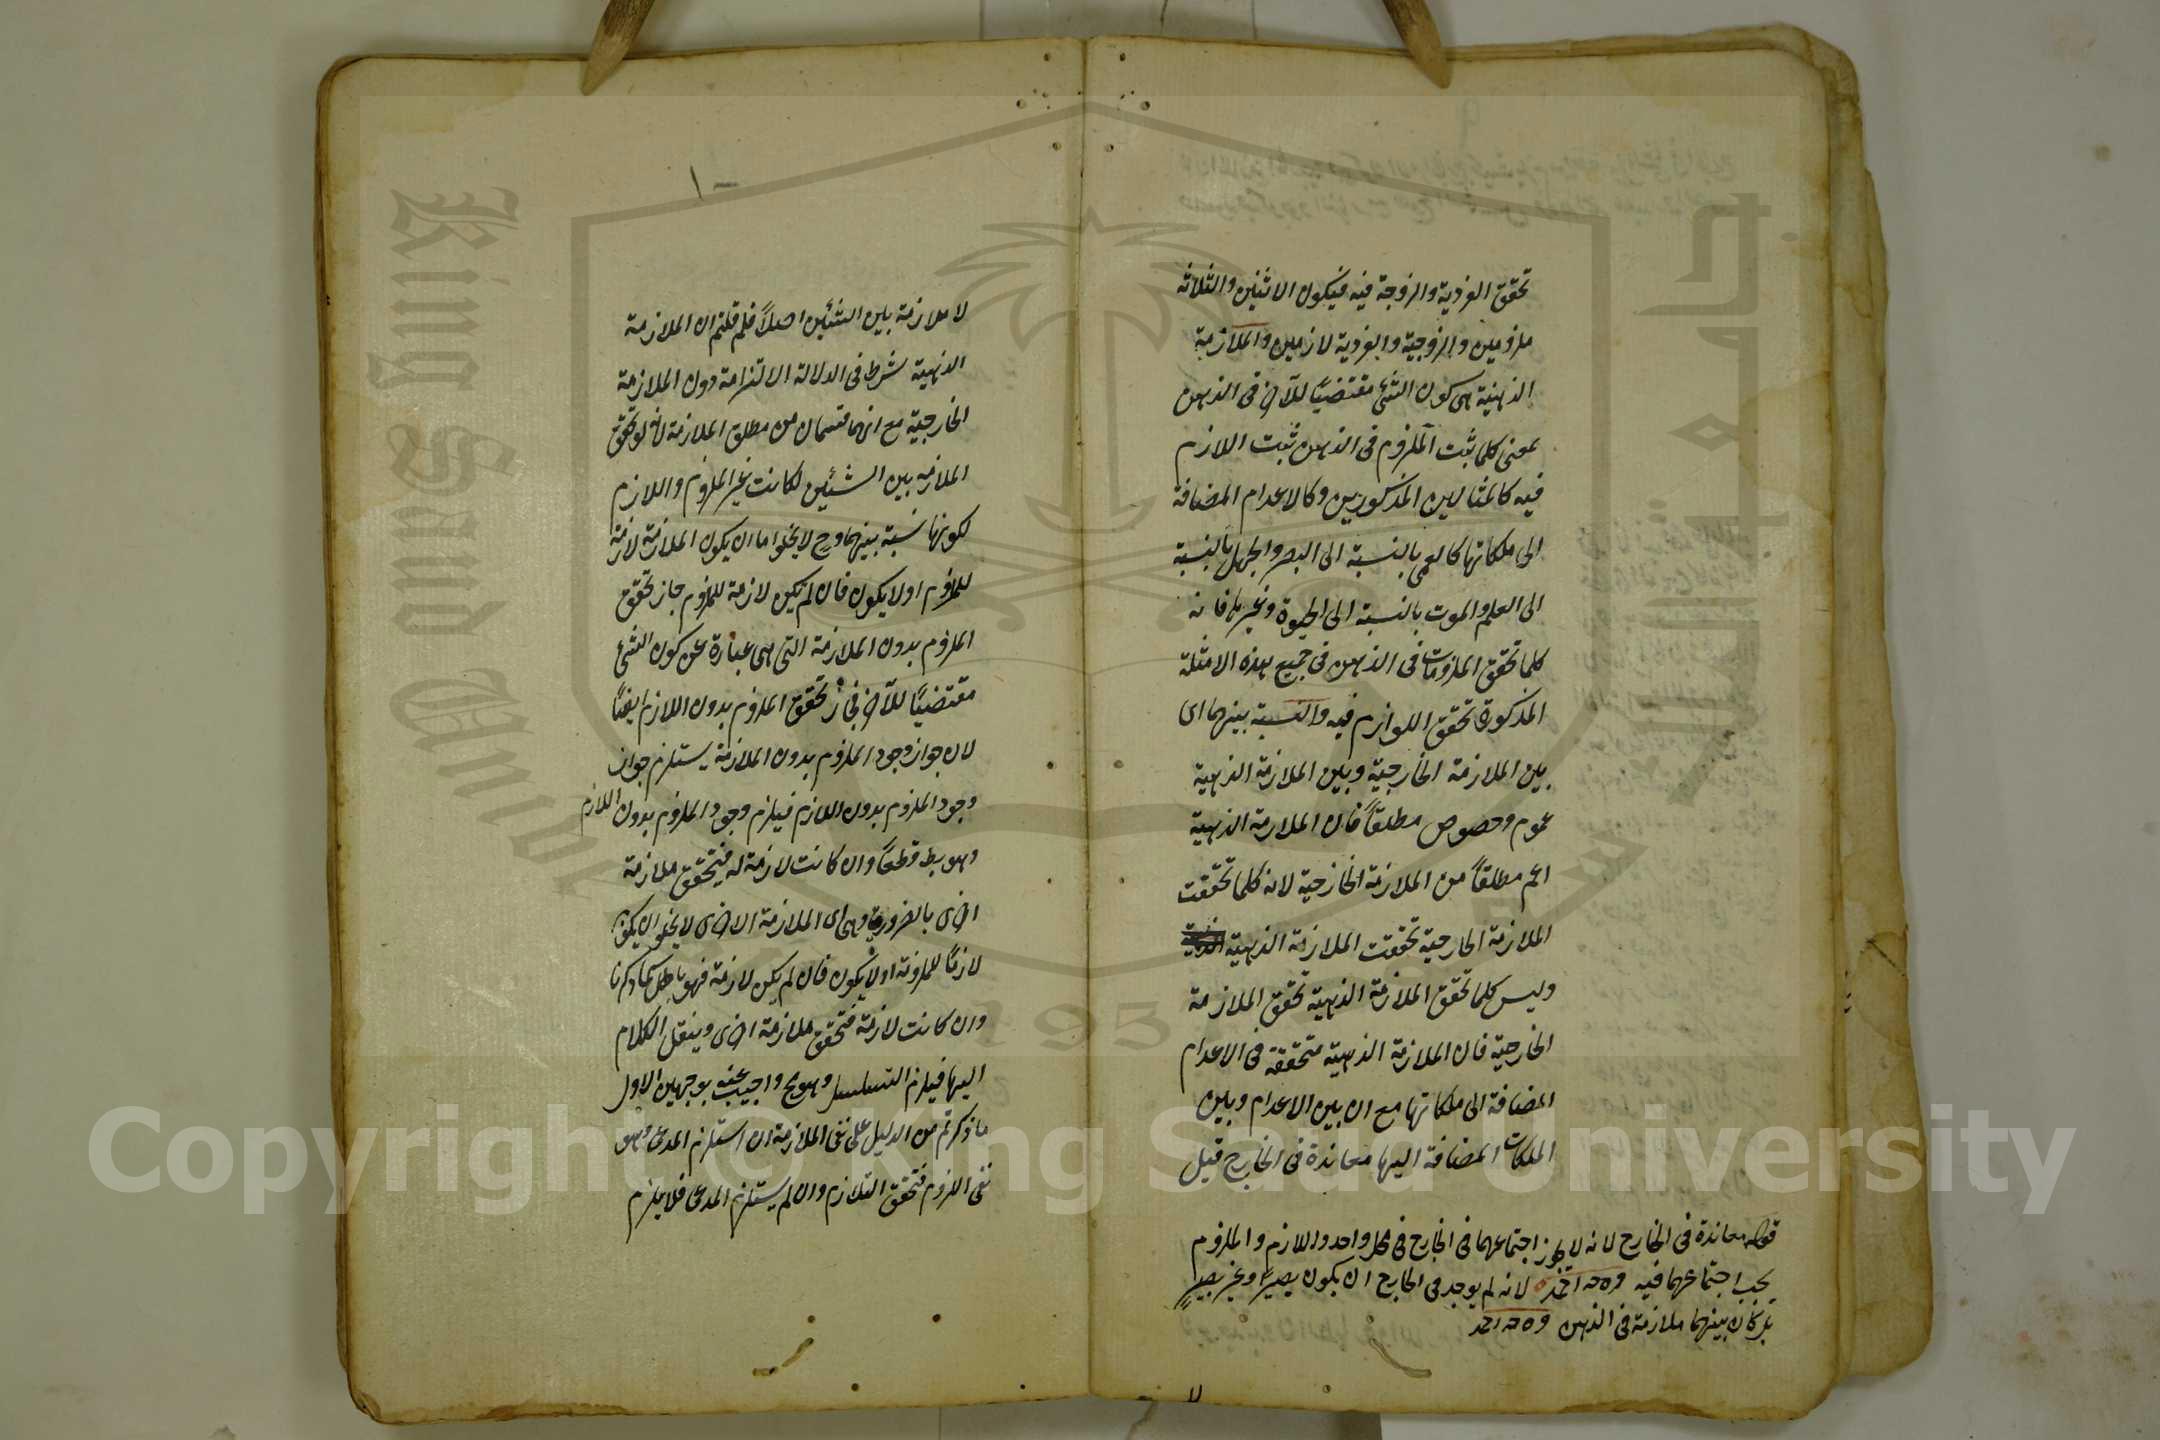 تحقق الفردية والزوجة فيه فيكون الاثنين والثلاثه
ملزومين والزوجية والفردية لازمين والملازمة
الذهنية هى كون الشئ مقتضيًا للآخر فى الذهن
بمعنى كلما ثبت الملزوم فى الذهن ثبت اللازم
فيه كالمثالين المذكورين وكالاعدام المضافة
الى ملكاتها كالعمى بالنسبة الى البصر والجهل بالنسبة
الى العلم والموت بالنسبة الى الحيوة وغيرها فانه
كلما تحقق الملزومات فى الذهن فى جميع هذه الامثلة
المذكورة تحقق اللوازم فيه والنسبة بينهما اى
بين الملازمة الخارجية وبين الملازمة الذهنية
عموم وخصوص مطلقاً فان الملازمة الذهنية
اعم مطلقاً من الملازمة الخارجية لانه كلما تحققت
الملازمة الخارجية تحققت الملازمة الذهنية
وليس كلما تحقق الملازمة الذهنية تحقق الملازمة
الخارجية فان الملازمة الذهنية متحققة فى الاعدام
المضافة الى ملكاتها مع ان بين الاعدام وبين
الملكات المضافة اليها معاندة فى الخارج قيل
قوله معاندة فى الخارج لانه لا يجوز اجتماعهما فى الخارج فى محل واحد واللازم والملزوم
يجب اجتماعهما فيه لانه لم يوجد فى الخارج ان يكون بصيرًا وغير بصيرٍ
بل كان بينهما ملازمة فى الذهن
١٠
لا ملازمة بين الشئين اصلاً فلم قلتم ان الملازمة
الذهنية شرط فى الدلالة الالتزامة دون الملازمة
الخارجية مع انهما قسمان من مطلق الملازمة لانه لو تحقق
الملازمه بين الشئين لكانت غير الملزوم واللازم
لكونها نسبة بينهما وح لا يخلوا اما ان يكون الملازمة لازمة
للملزوم او لا يكون فان لم تكن لازمة للملزوم جاز تحقق
الملزوم بدون الملازمة التى هى عبارة عن كون الشئ
مقتضيًا للآخر تحقق الملزوم بدون اللازم ايضًا
لان جواز وجود الملزوم بدون الملازمة يستلزم جواز
وجود الملزوم بدون اللازم فيلزم وجود الملزوم بدون اللازم
وهو بط قطعاً وان كانت لازمة له فيتحقق ملازمة
اخرى بالضرورة وهى اى الملازمة الاخرى لا يخلو ان يكون
لازمًا للملزومة اولا يكون فان لم يكن لازمة فهو باطل كما ذكرنا
وان كانت لازمة فتحقق ملازمة اخرى وينقل الكلام
اليها فيلزم التسلسل وهو مح واجيب عنه بوجهين الاول
ما ذكرتم من الدليل على نفى الملازمة ان استلزم المدعى وهو
نفى اللزوم فتحقق التلازم وان لم يستلزم المدعى فلا يلزم
Copyright © King Saud University
King Saud University
جامعة الملك سعود
1957